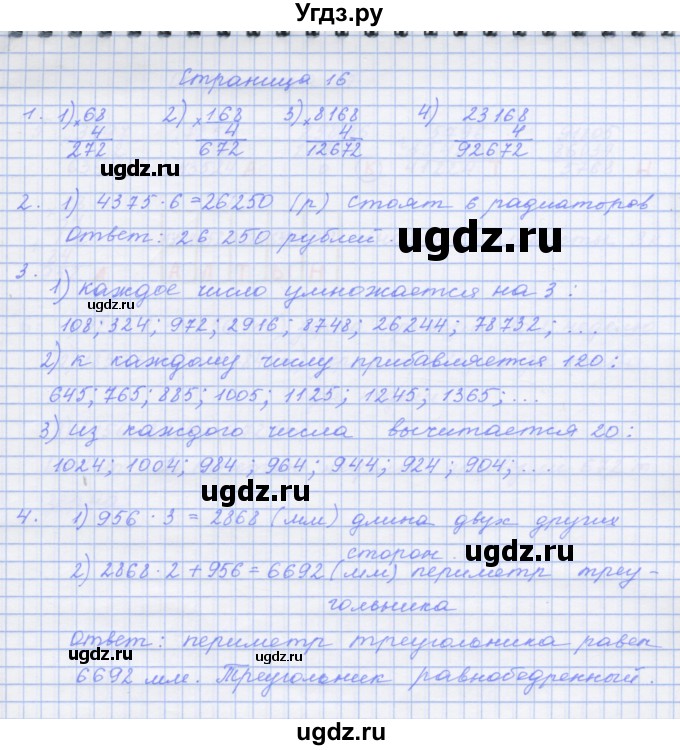 Угдз.ру
Страница 16
1. 1) × 68 2) × 168 3) × 8168 4) 23168
4 4 4 4
272 672 12672 92672
ugdz.ru
2. 1) 4375 · 6 = 26250 (р) стоят 6 радиаторов.
Ответ: 26 250 рублей.
ugdz.ru
3.
1) каждое число умножается на 3:
ugdz.ru
108; 324; 972; 2916; 8748; 26244; 78732; ...
2) к каждому числу прибавляется 120:
645; 765; 885; 1005; 1125; 1245; 1365; ...
3) из каждого числа вычитается 20:
1024; 1004; 984; 964; 944; 924; 904; ...
ugdz.ru
4. 1) 956 · 3 = 2868 (мм) длина двух других
сторон.
ugdz.ru
2) 2868 · 2 + 956 = 6692 (мм) периметр треу-
гольника
Ответ: периметр треугольника равен
ugdz.ru
ugdz.ru
6692 мм. Треугольник равнобедренный.
Угдз.ру